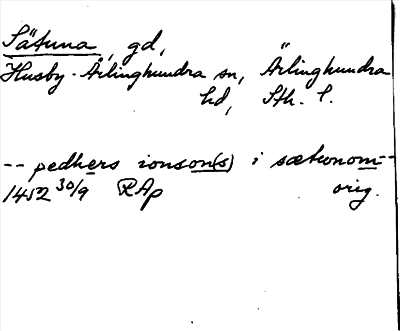 Sätuna, gd,
Husby-Ärlinghundra sn, Ärlinghundra
hd, Sth. l.
-- pedhers ionson(s) i sætunom--
1452 30/9 RAp orig.